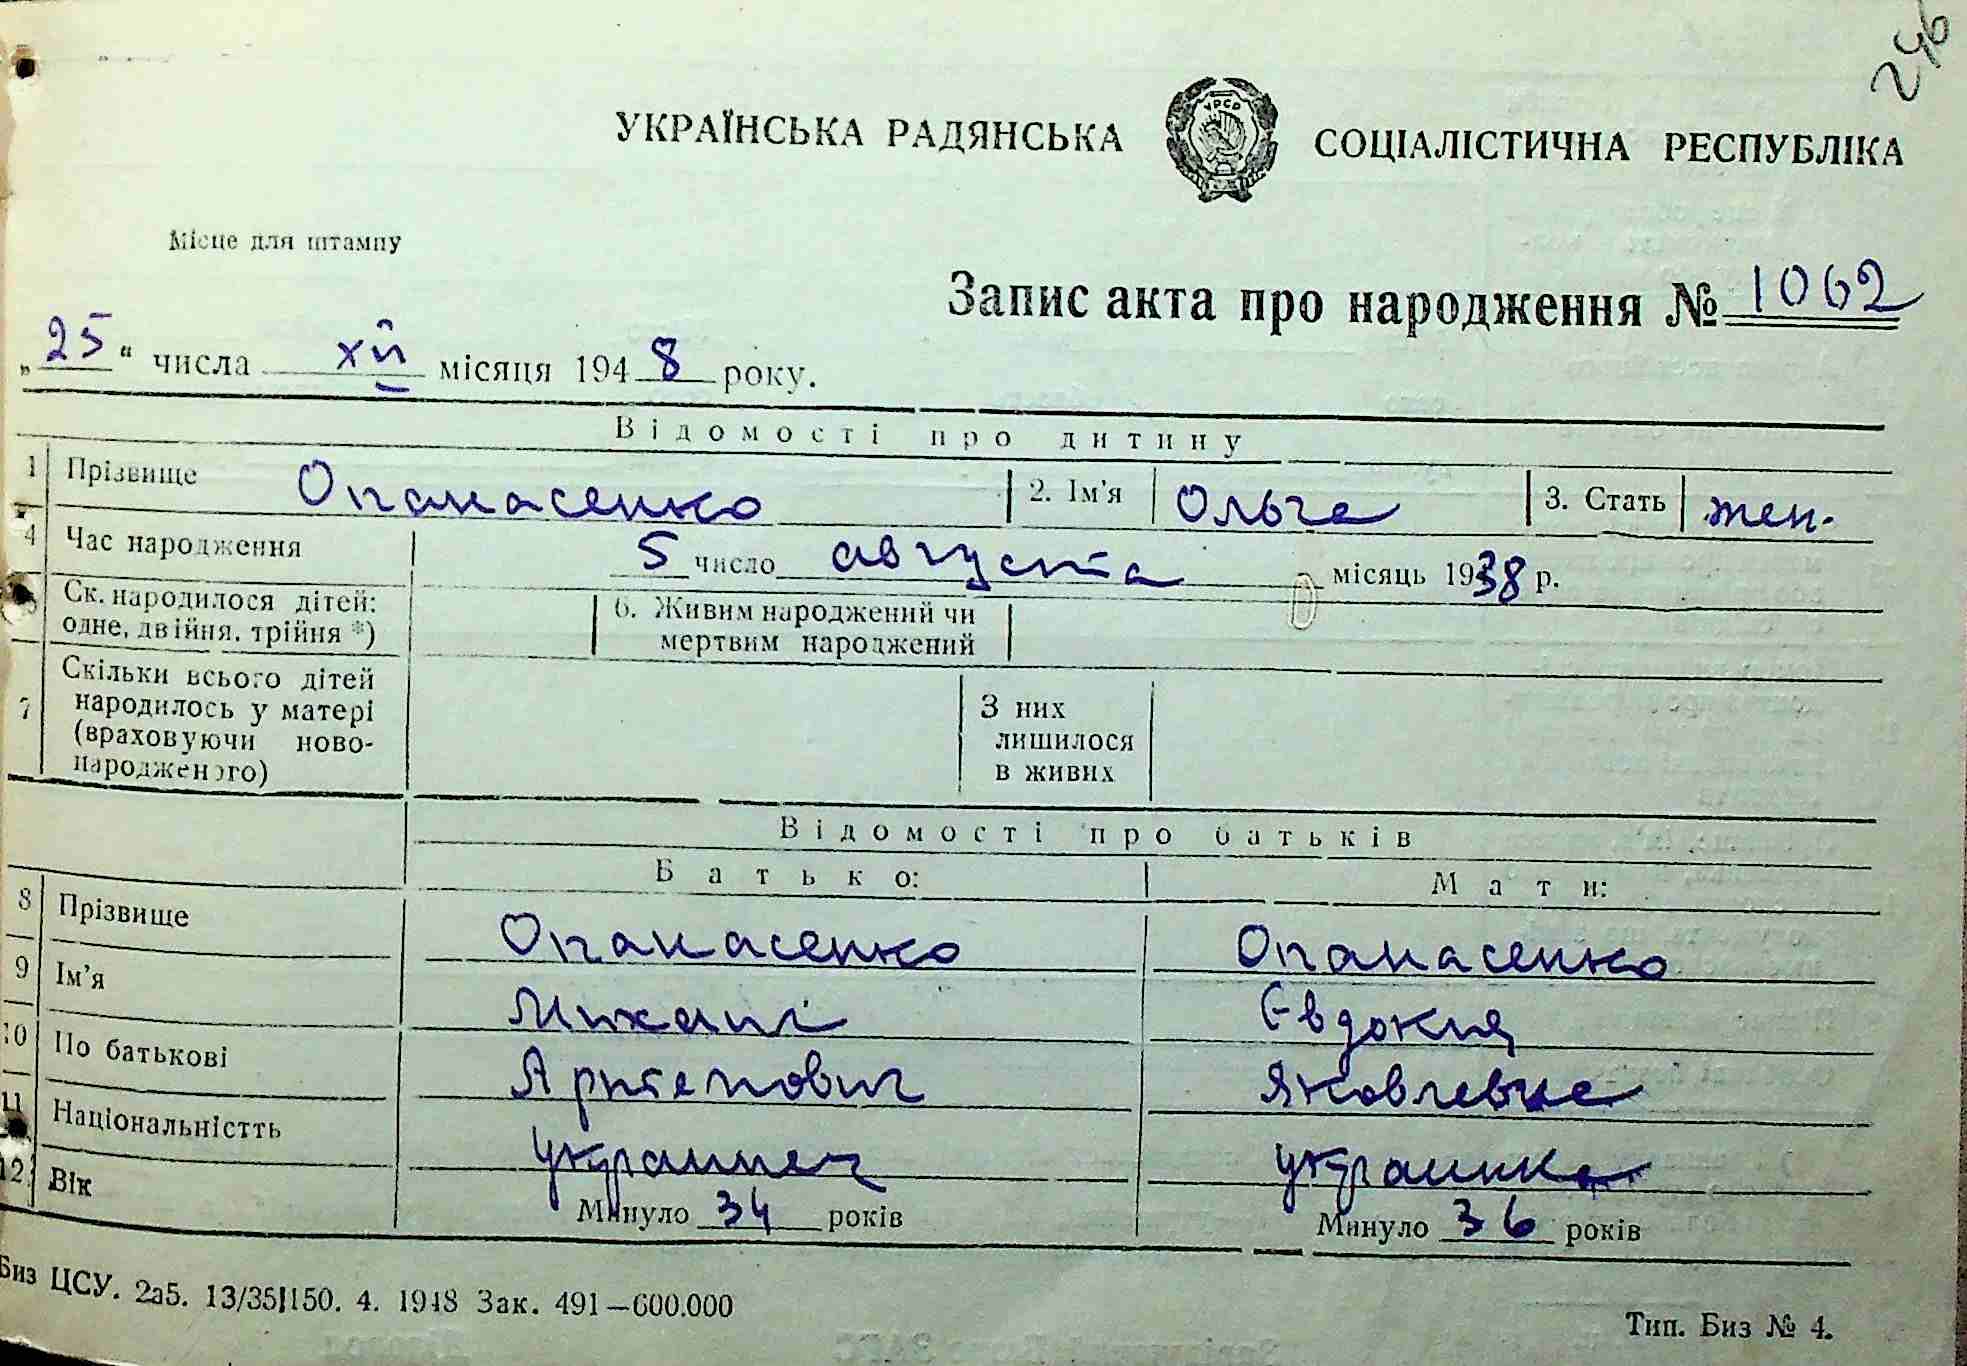 246
УКРАЇНСЬКА РАДЯНСЬКА УРСР СОЦІАЛІСТИЧНА РЕСПУБЛІКА
Місце для штампу
Запис акта про народження № 1062
„25“ числа XII місяця 1948 року.
Відомості про дитину
1 Прізвище Опанасенко 2. Ім'я Ольга 3. Стать жен.
4 Час народження 5 число августа місяць 1938 р.
5 Ск. народилося дітей: одне, двійня, трійня *) 6. Живим народжений чи мертвим народжений
7 Скільки всього дітей народилось у матері (враховуючи новонародженого) З них лишилося в живих
Відомості про батьків
Батько: Мати:
8 Прізвище Опанасенко Опанасенко
9 Ім'я Михаил Євдокия
10 По батькові Артемович Яковлевна
11 Національністть украинец украинка
12 Вік Минуло 34 років Минуло 36 років
Биз ЦСУ. 2а5. 13/35/150. 4. 1948 Зак. 491—600.000
Тип. Биз № 4.